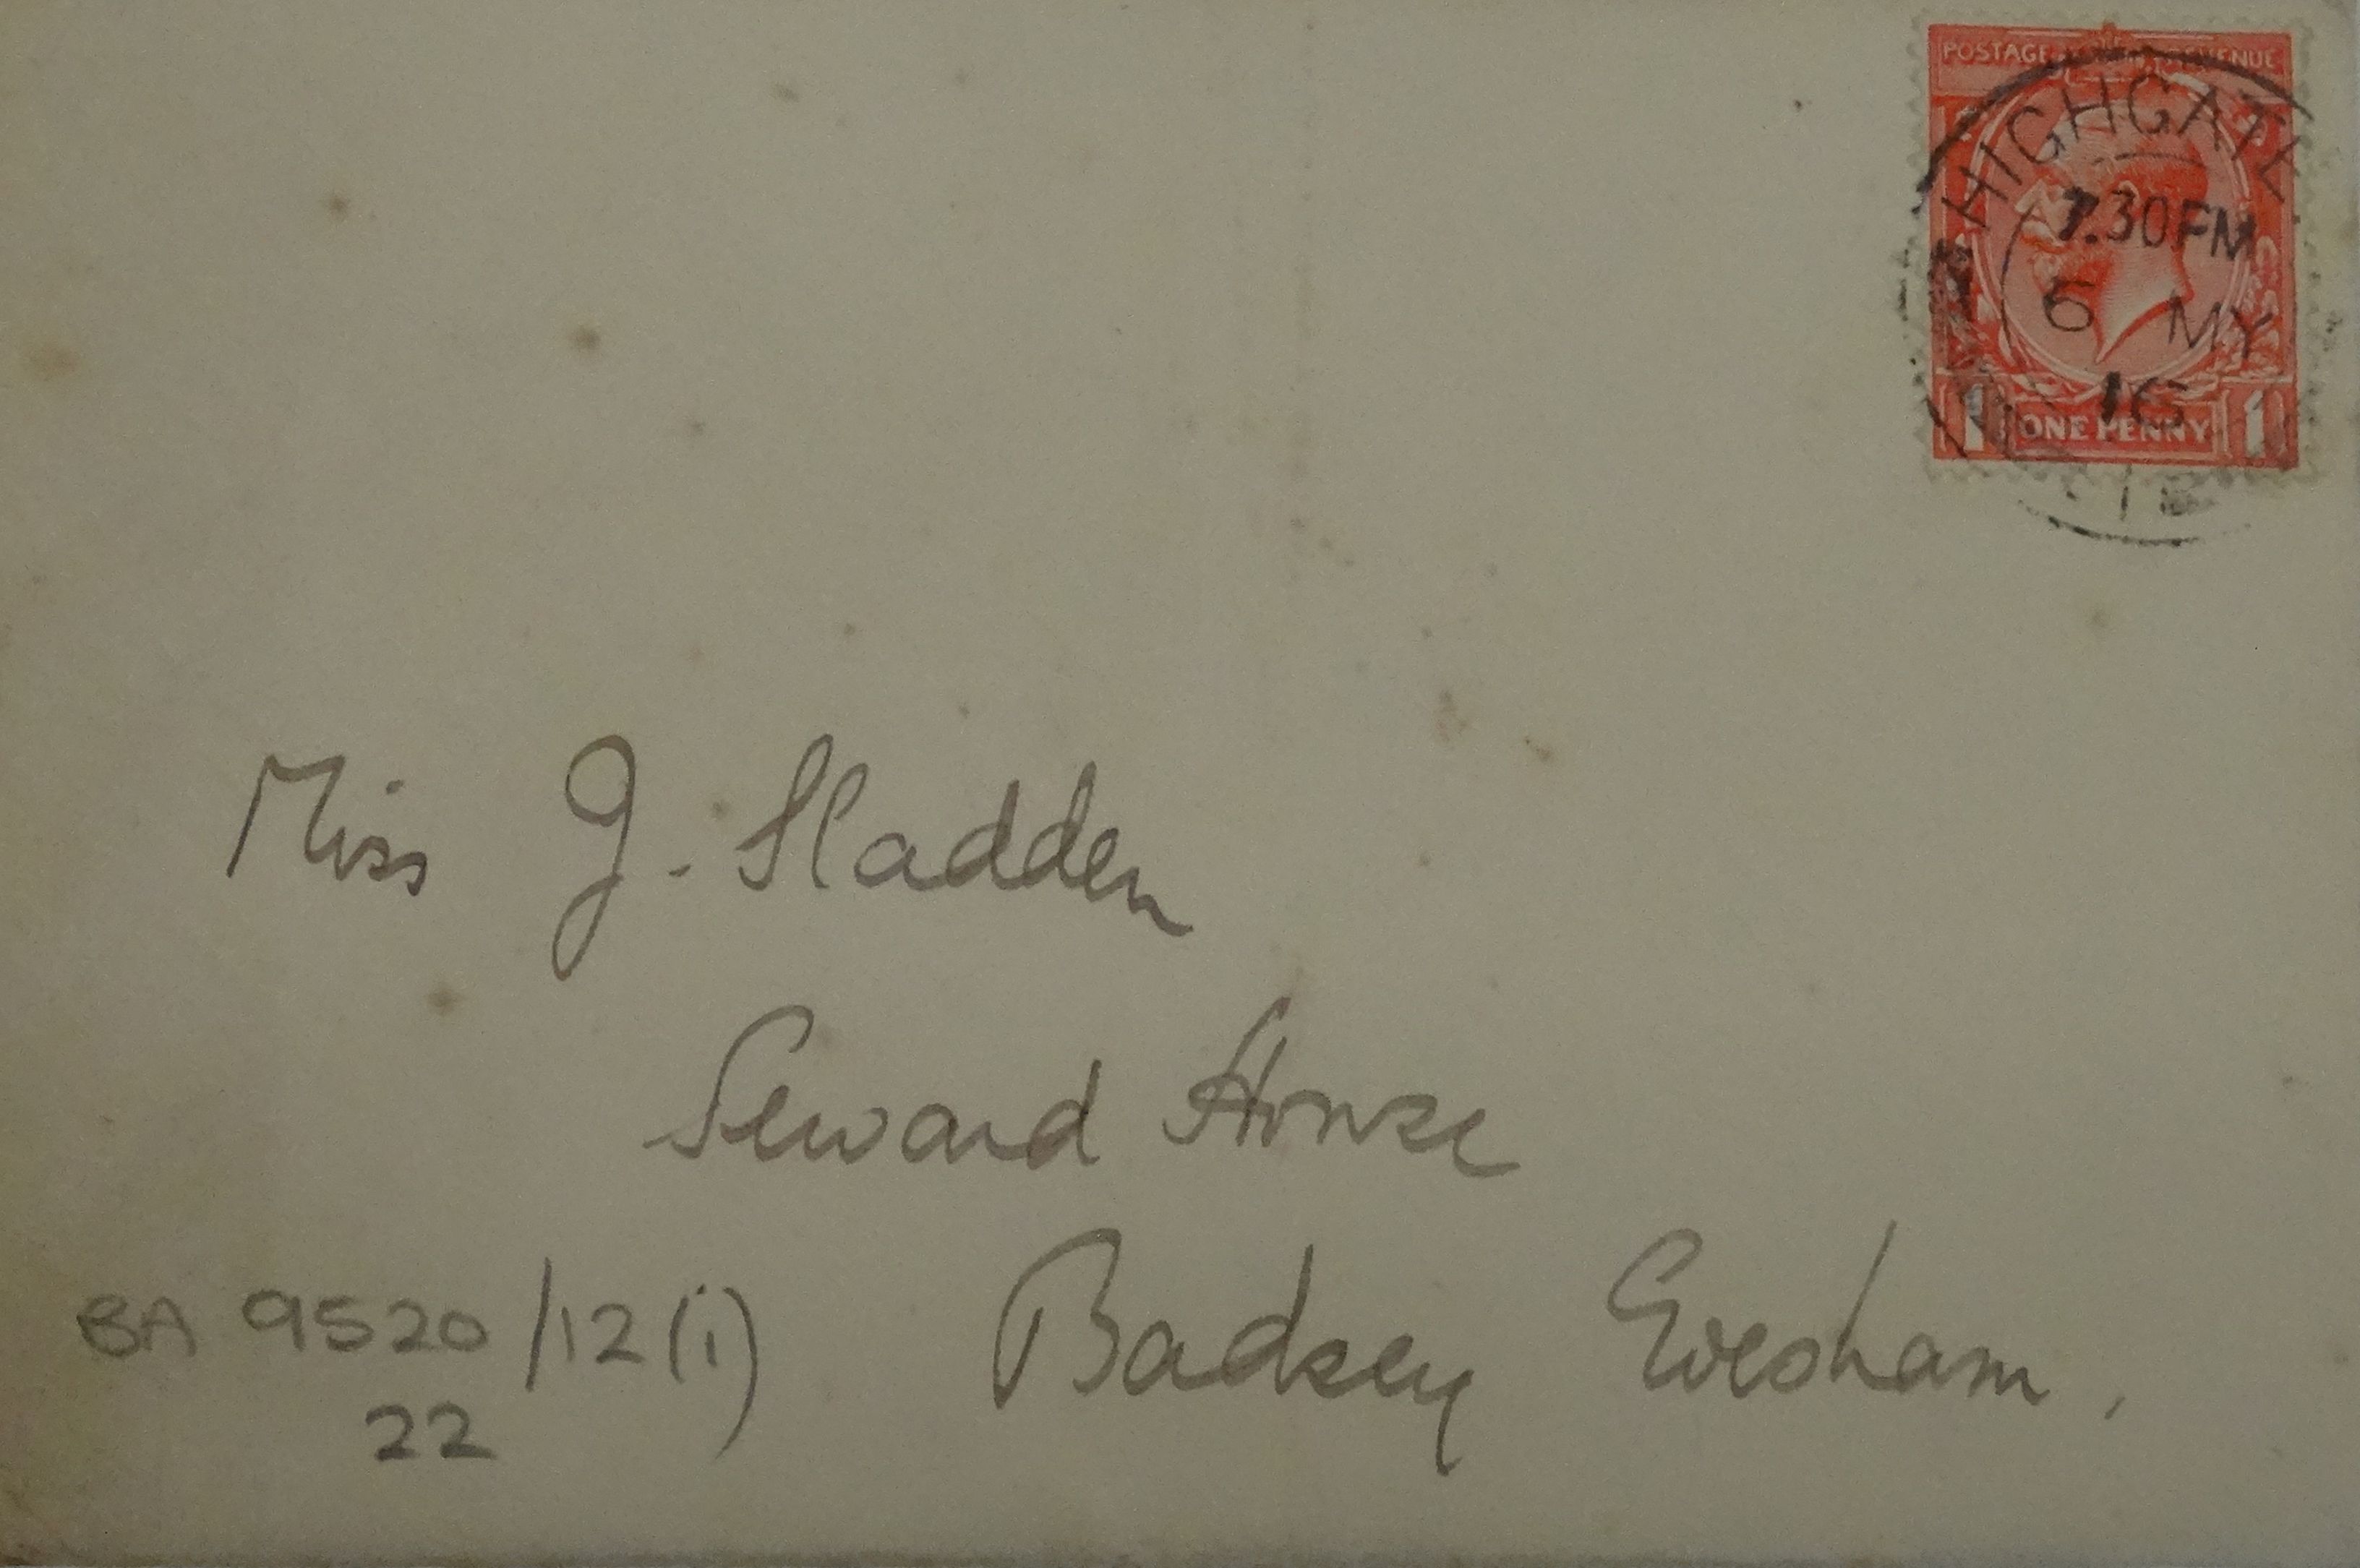 POSTAGE REVENUE
HIGHGATE
7.30PM
6 MY
16
1 ONE PENNY 1
Miss J. Sladden
Seward House
Badsey Evesham.
BA 9520/12(i)
22